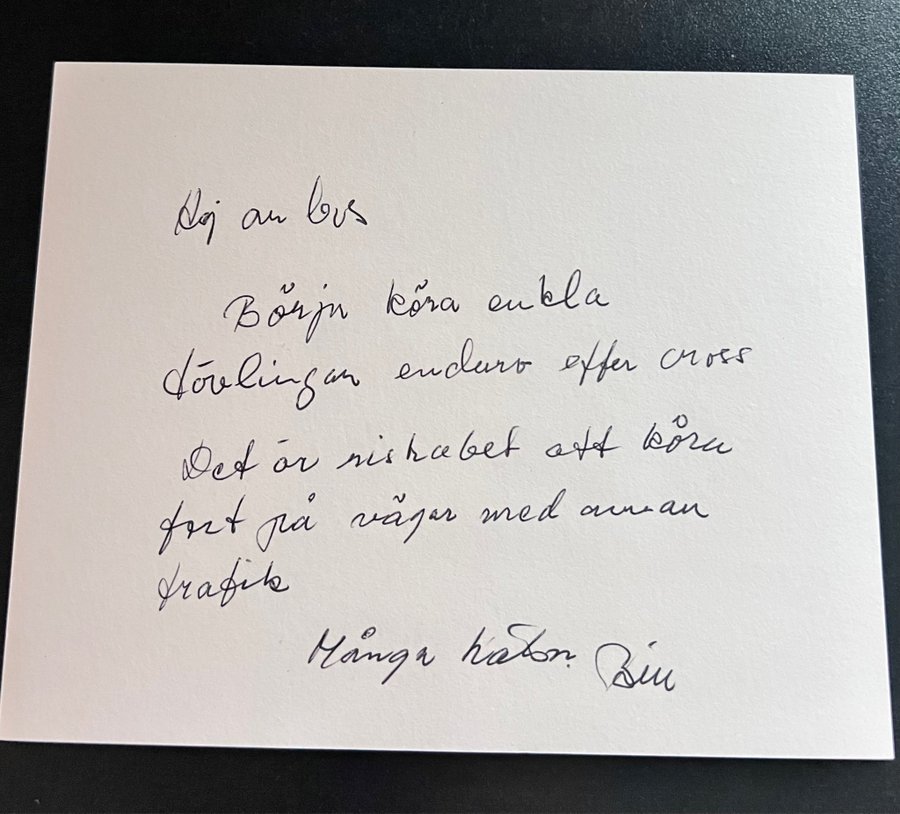 Hej
Börja köra enkla
tävlingar enduro eller cross
Det är riskabelt att köra
fort på vägar med annan
trafik
Många hälsn.